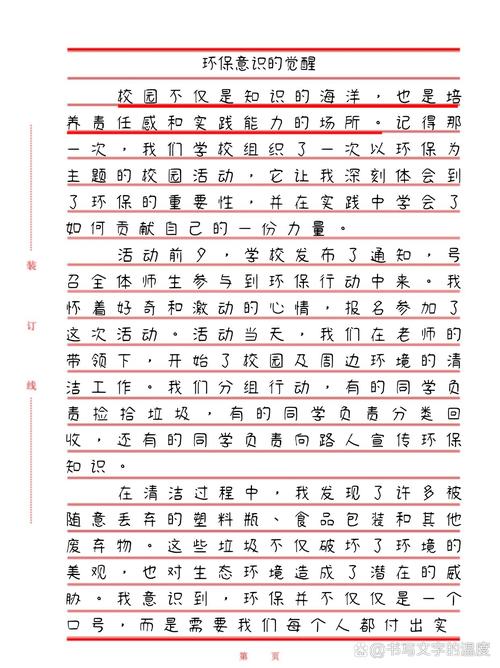 环保意识的觉醒
校园不仅是知识的海洋，也是培
养责任感和实践能力的场所。记得那
一次，我们学校组织了一次以环保为
主题的校园活动，它让我深刻体会到
了环保的重要性，并在实践中学会了
如何贡献自己的一份力量。
活动前夕，学校发布了通知，号
召全体师生参与到环保行动中来。我
怀着好奇和激动的心情，报名参加了
这次活动。活动当天，我们在老师的
带领下，开始了校园及周边环境的清
洁工作。我们分组行动，有的同学负
责捡拾垃圾，有的同学负责分类回
收，还有的同学负责向路人宣传环保
知识。
在清洁过程中，我发现了许多被
随意丢弃的塑料瓶、食品包装和其他
废弃物。这些垃圾不仅破坏了环境的
美观，也对生态环境造成了潜在的威
胁。我意识到，环保并不仅仅是一个
口号，而是需要我们每个人都付出实
装
订
线
第 页
@书写文字的温度